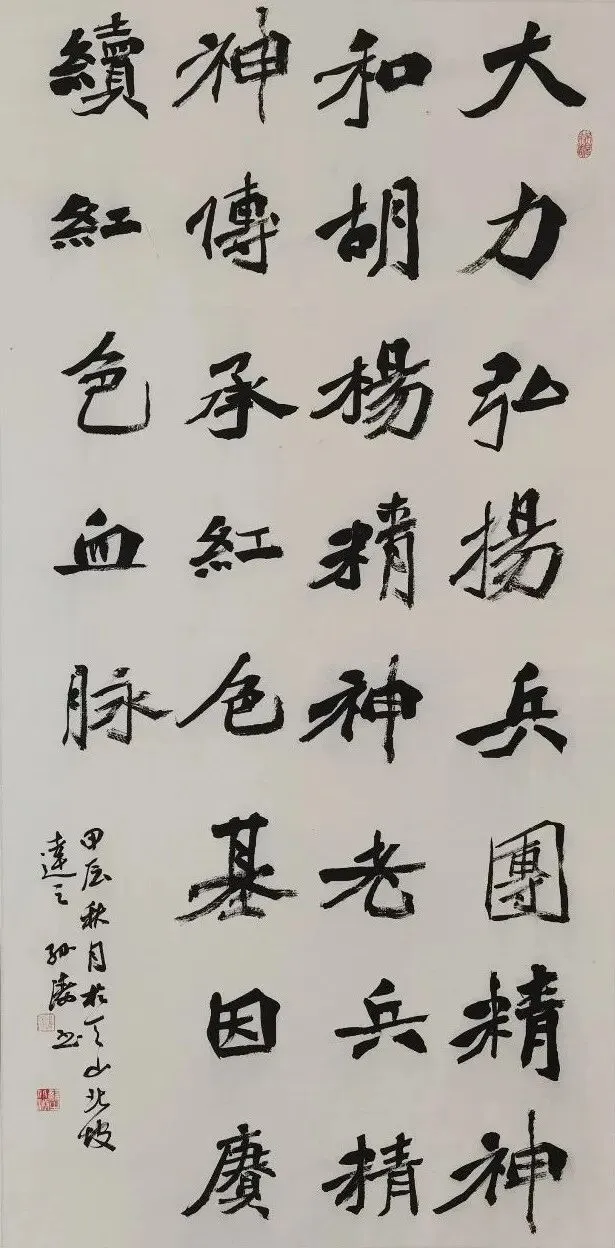 大力弘揚兵團精神
和胡楊精神老兵精
神傳承紅色基因賡
續紅色血脉
甲辰秋月於天山北坡
達之 孙濤 书